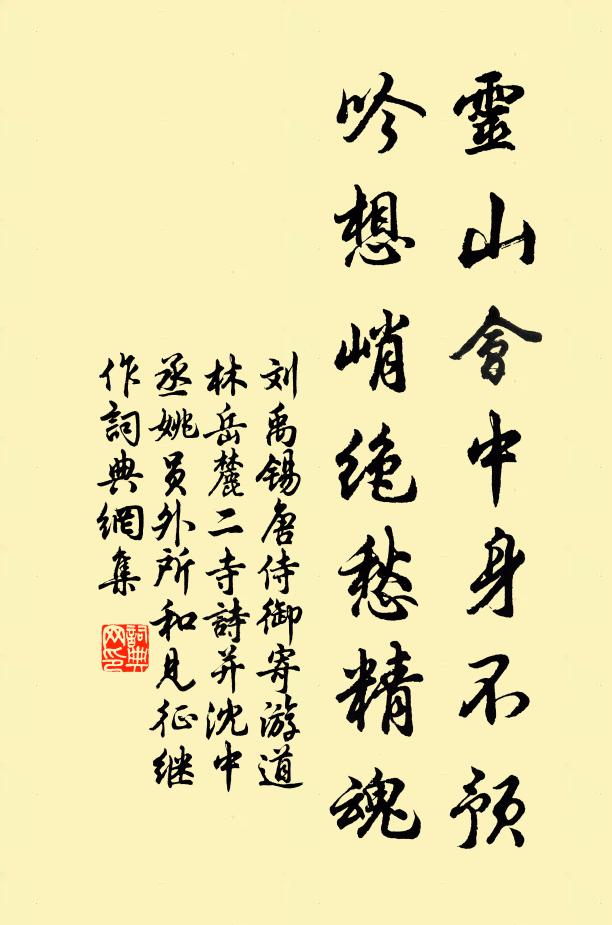 靈山會中身不預
吟想峭绝愁精魂
刘禹锡唐侍御寄游道
林岳麓二寺詩并沈中
丞姚员外所和見征继
作詞典網集
詞典網印